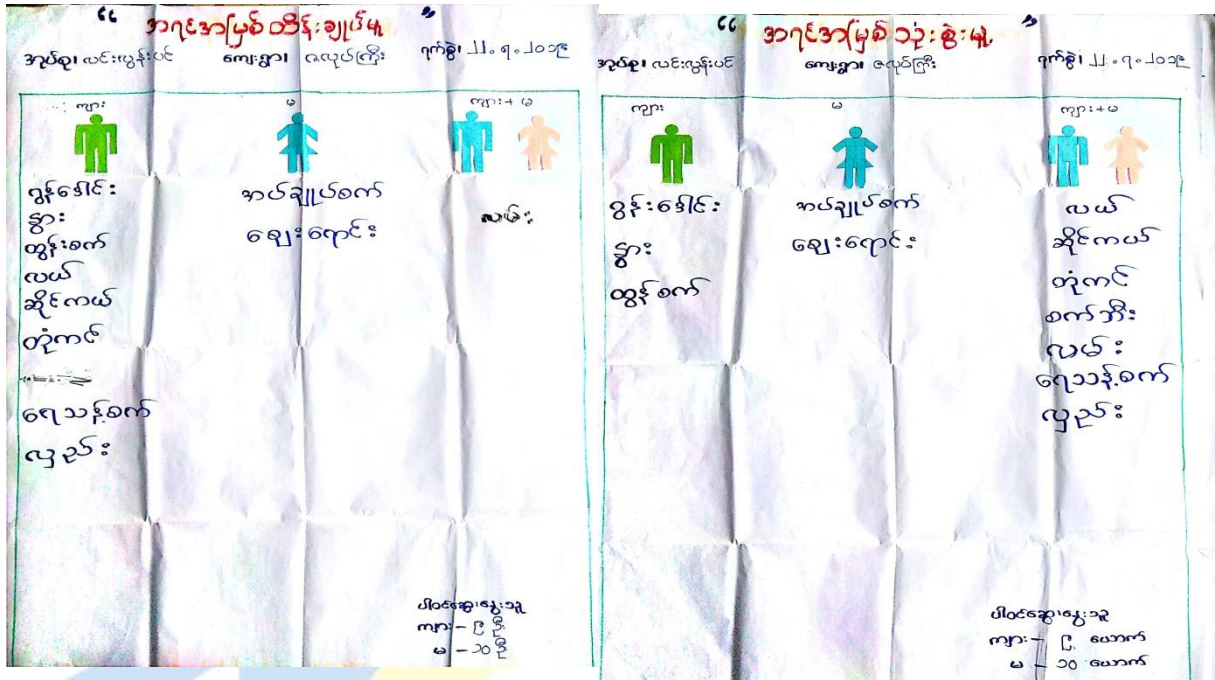 “ အရင်းအမြစ် ထိန်းချုပ်မှု ”
အုပ်စု၊ လင်းလွန်းပင်  ကျေးရွာ၊ ဇလုပ်ကြီး  ရက်စွဲ၊ ၂၂.၇.၂၀၁၉
ကျား  မ  ကျား + မ
ထွန်ဒေါင်း
နွား
ထွန်းစက်
လယ်
ဆိုင်ကယ်
တုံကင်
ရေသန့်စက်
လှည်း
အပ်ချုပ်စက်
ဈေးရောင်း
လမ်း
ပါဝင်ဆွေးနွေးသူ
ကျား - ၉ ဦး
မ - ၁၀ ဦး
“ အရင်အမြစ် သုံးစွဲမှု ”
အုပ်စု၊ လင်းလွန်းပင်  ကျေးရွာ၊ ဇလုပ်ကြီး  ရက်စွဲ၊ ၂၂.၇.၂၀၁၉
ကျား  မ  ကျား + မ
နွား
ထွန်စက်
အပ်ချုပ်စက်
ဈေးရောင်း
လယ်
ဆိုင်ကယ်
တုံကင်
စက်ဘီး
လမ်း
ရေသန့်စက်
လှည်း
ပါဝင်ဆွေးနွေးသူ
ကျား - ၉ ယောက်
မ - ၁၀ ယောက်